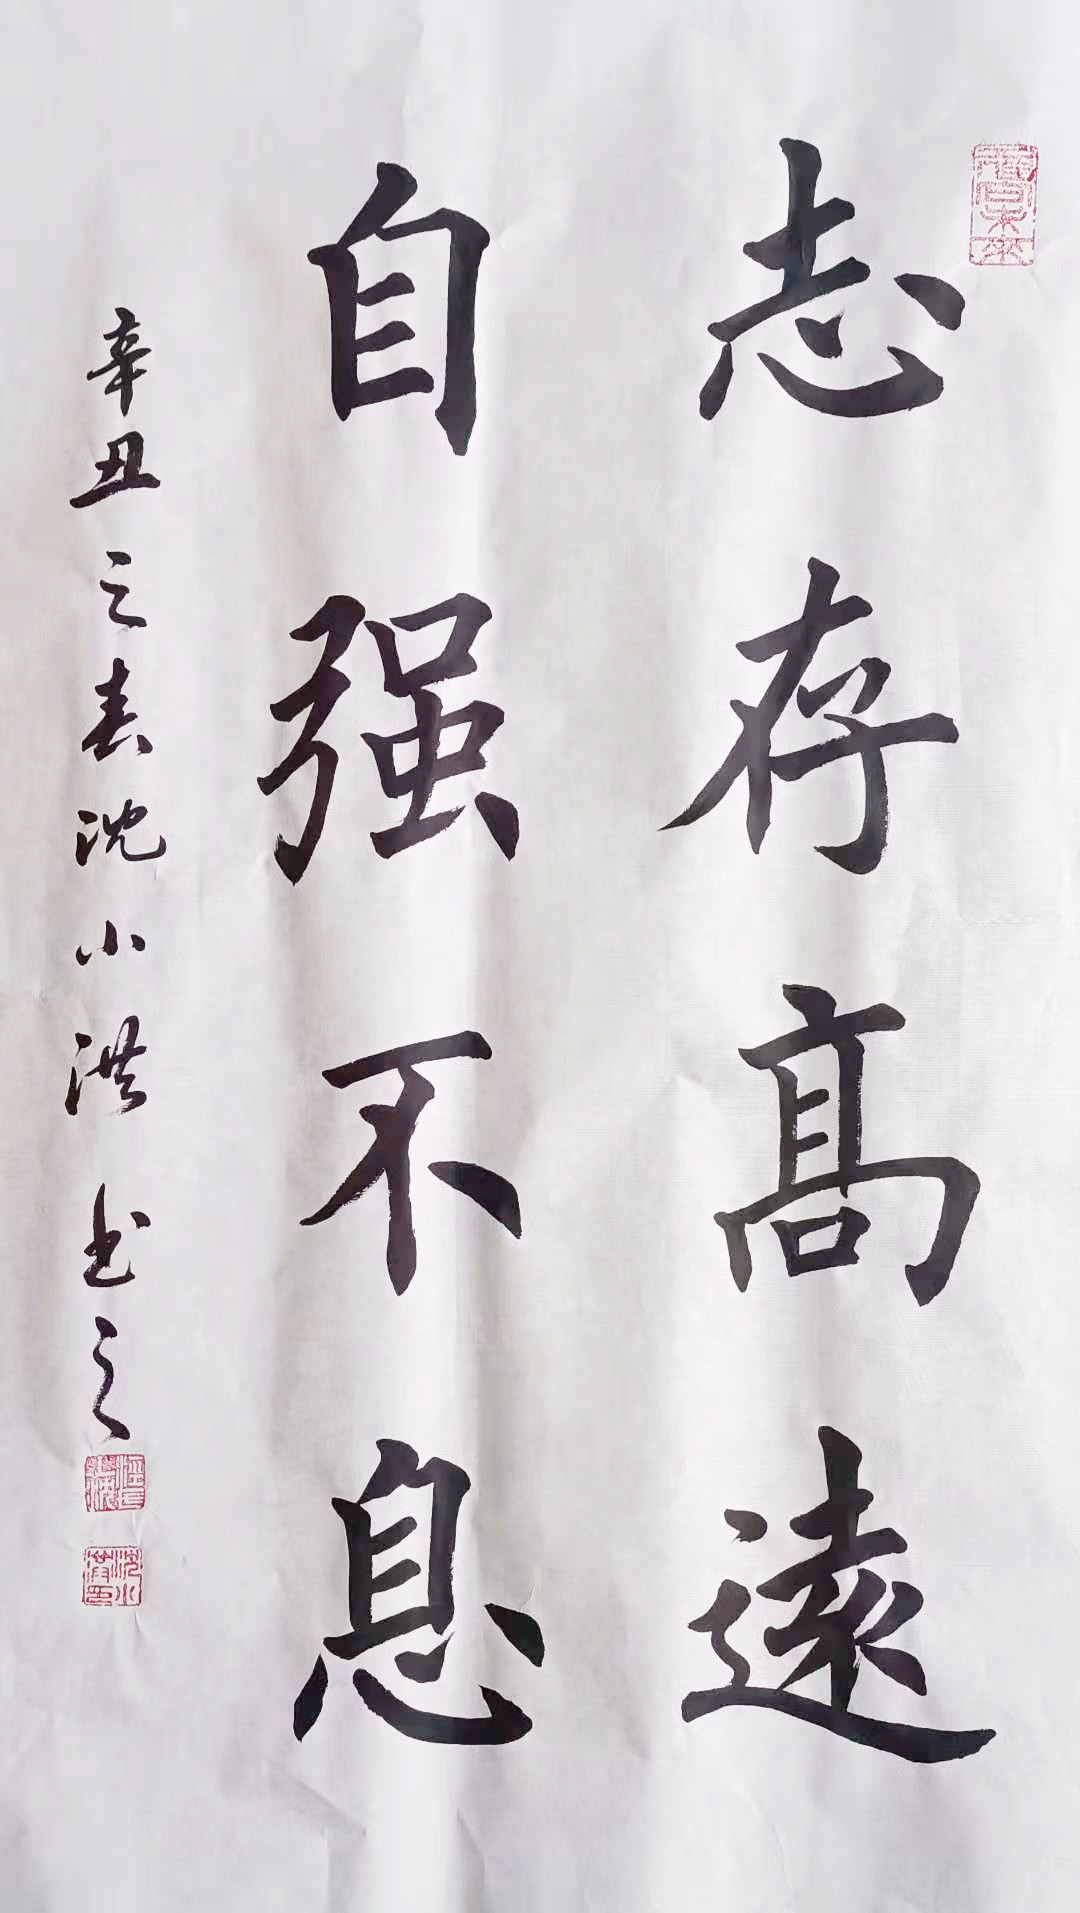 志存高遠
自强不息
辛丑之春沈小洪书之